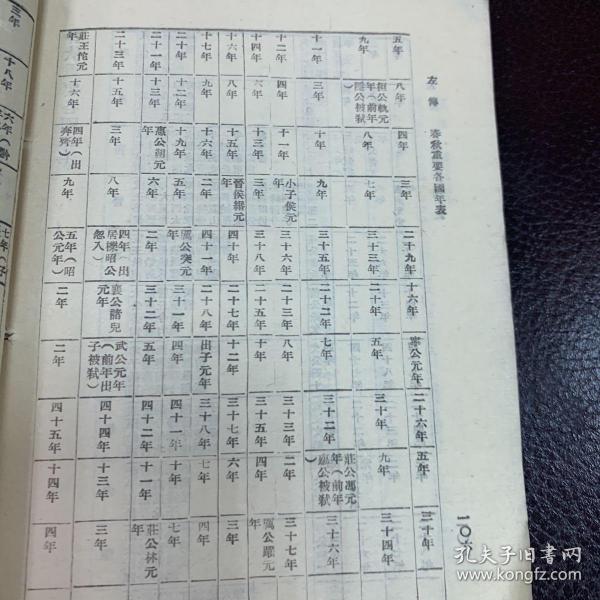 左傳 春秋重要各國年表
一〇
五年 八年 四年 三年 二十九年 十六年 寧公元年 二十六年 五年 三十年
九年 桓公軌元年（前年隱公被弒） 八年 七年 三十三年 二十年 五年 三十年 九年 三十四年
十一年 三年 十年 九年 三十五年 二十二年 七年 三十二年 莊公馮元年（前年殤公被弒） 三十六年
十二年 四年 十一年 小子侯元年 三十六年 二十三年 八年 三十三年 二年 三十七年
十四年 六年 十三年 三年 三十八年 二十五年 十年 三十五年 四年 厲公躍元年
十六年 八年 十五年 晉侯緡元年 四十年 二十七年 十二年 三十七年 六年 三年
十七年 九年 十六年 二年 四十一年 二十八年 出子元年 三十八年 七年 四年
二十年 十二年 十九年 五年 厲公突元年 三十一年 四年 四十一年 十年 七年
二十一年 十三年 惠公朔元年 六年 二年 三十二年 五年 四十二年 十一年 莊公林元年
二十三年 十五年 三年 八年 四年（出居櫟昭公忽入） 襄公諸兒元年 武公元年（前年出子被弒） 四十四年 十三年 三年
莊王佗元年 十六年 四年（出奔齊） 九年 五年（昭公元年） 二年 二年 四十五年 十四年 四年
三年 十八年 六年（黔
七年（子
孔夫子旧书网
www.kongfz.com